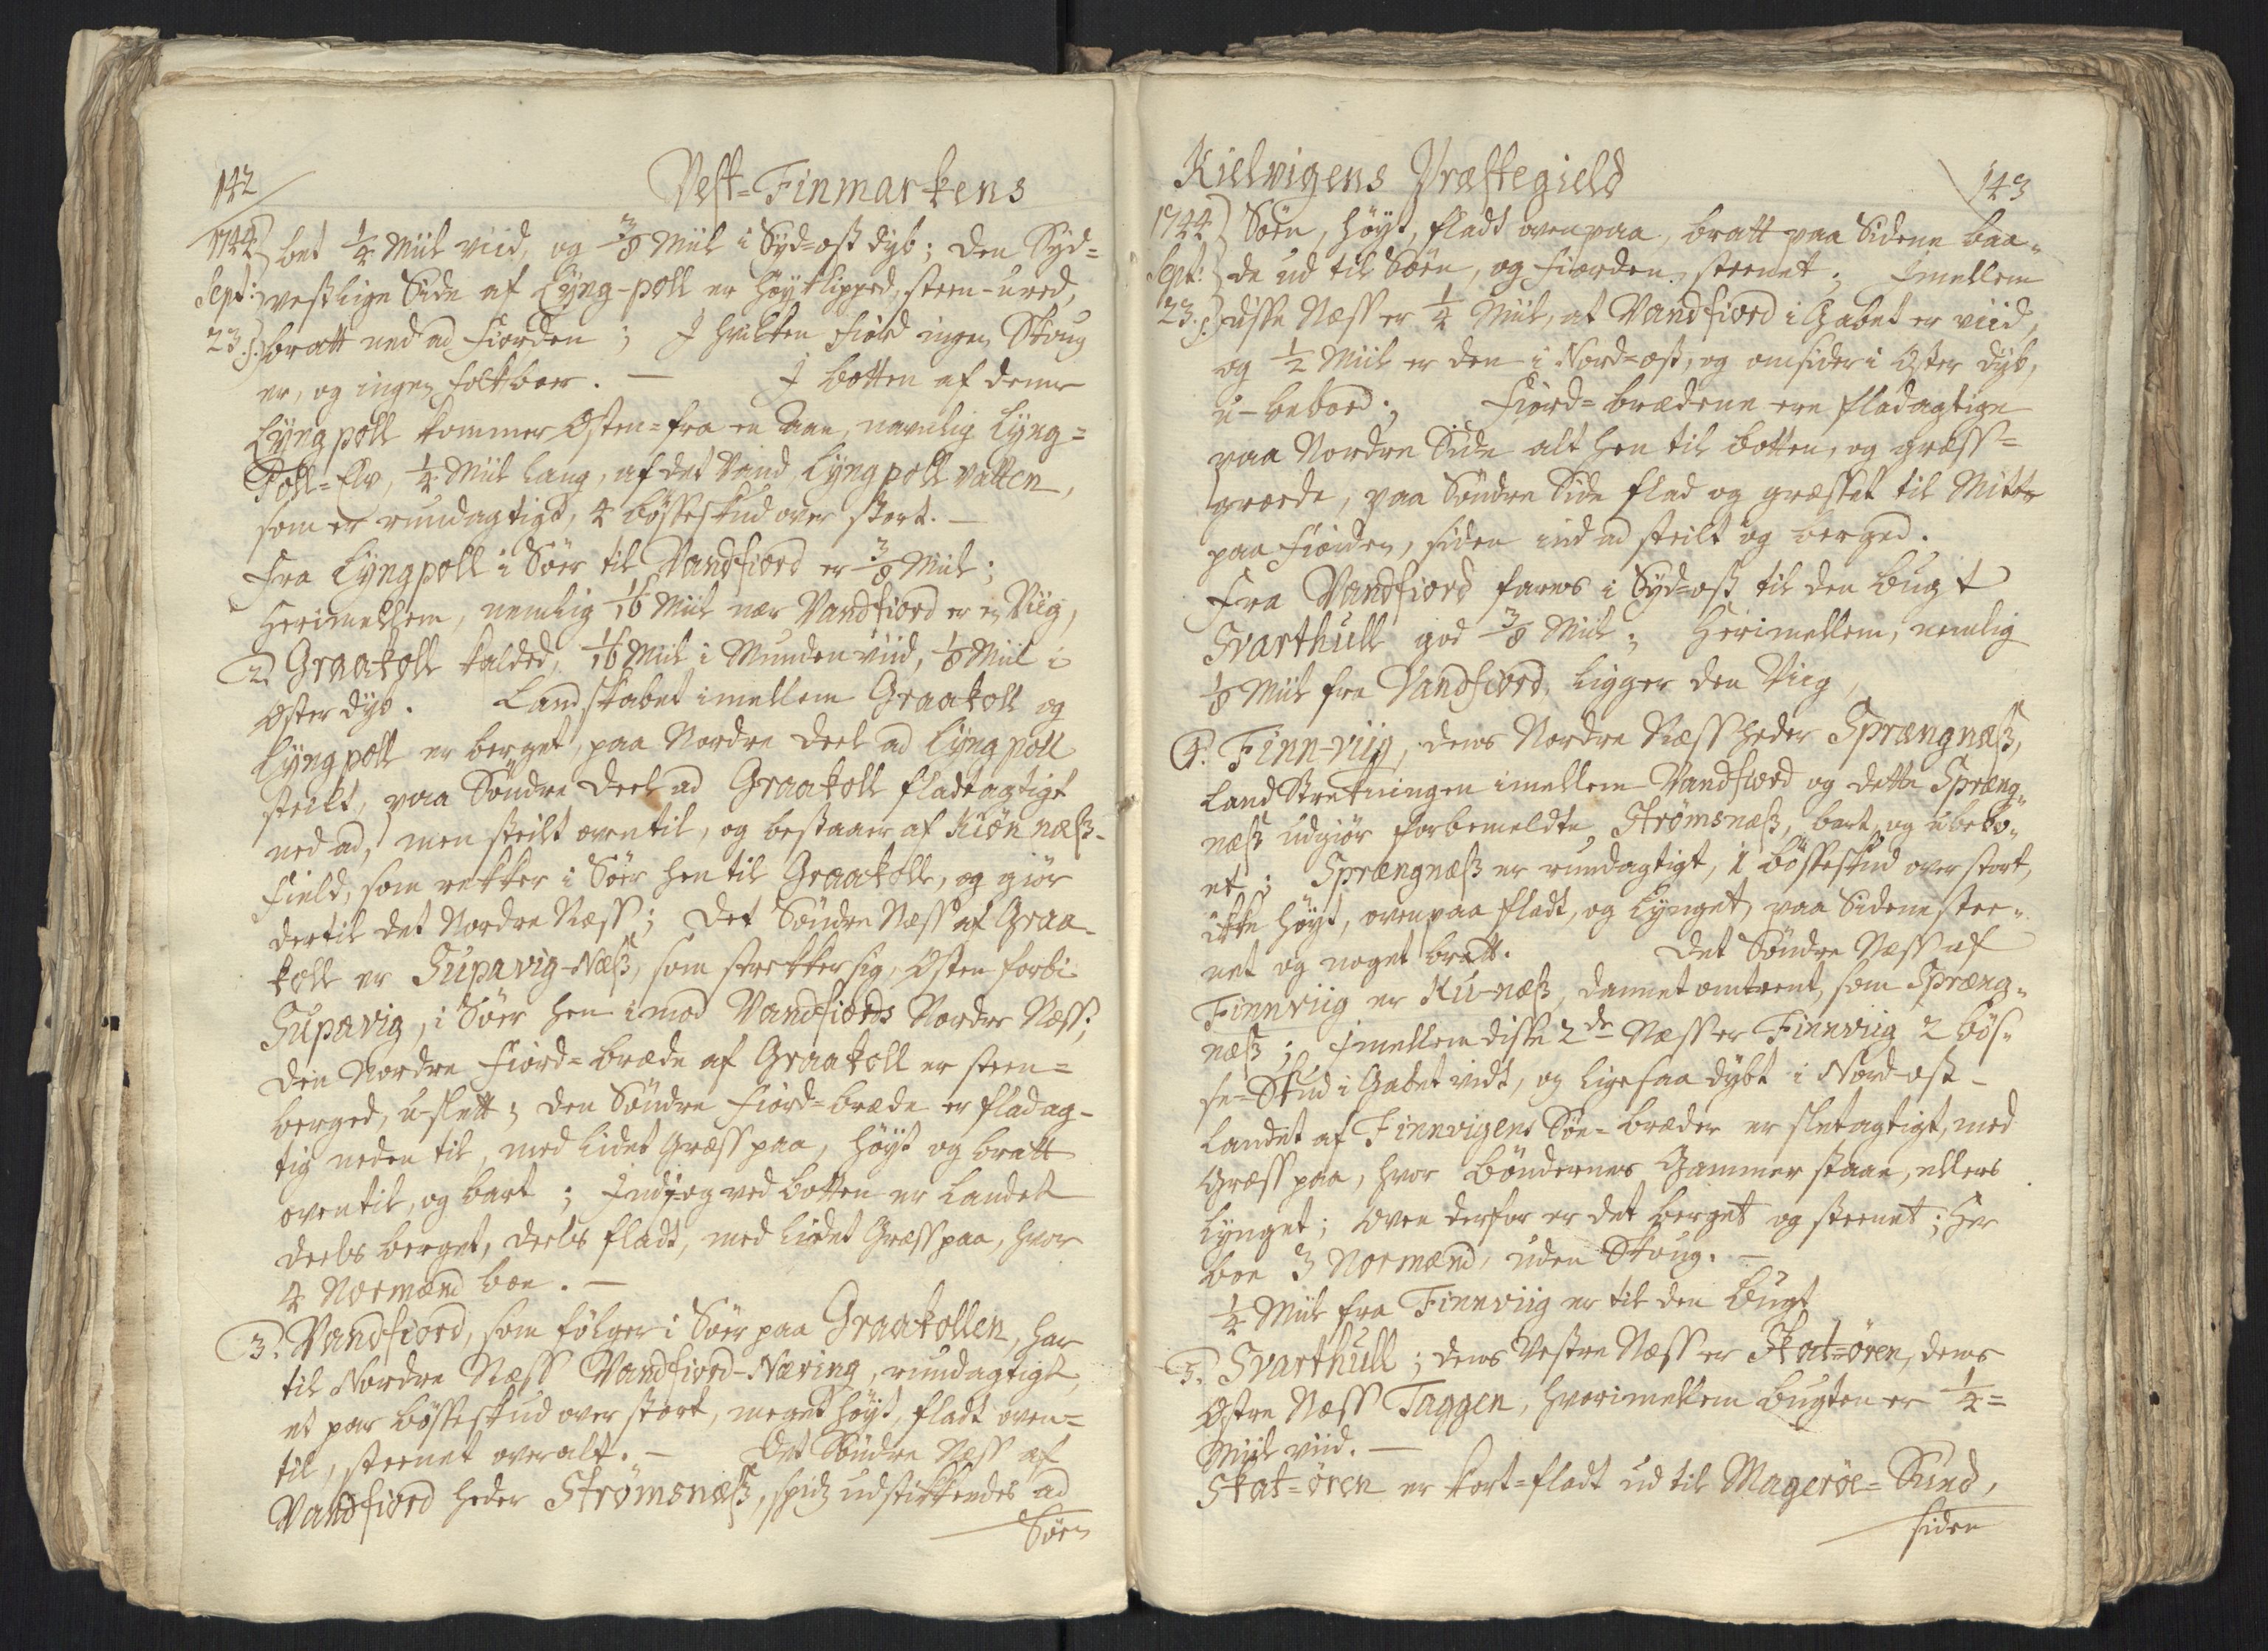 142
Vest=Finmarkens
1744 bet 1/4 Miil viid, og 3/8 Miil i Syd=ost dyb; den Syd=
Sept: vestlige Side af Lyng-poll er høy klipped, steen-ured,
23. s. bratt ned ad Fiorden; I hvilken Fiord ingen Skoug
er, og ingen folk boer. — I botten af denne
Lyngpoll kommer Østen=fra en Aae, navnlig Lyng=
Poll=Elv, 1/4 Miil lang, af det Vand Lyngpoll vatten,
som er rundagtigt, 4 bösseskud over stort. —
Fra Lyngpoll i Sör til Vandfiord er 3/8 Miil;
Herimellem, nemlig 1/16 Miil nær Vandfiord er en Viig,
2. Graakoll kalded, 1/16 Miil i Munden viid, 1/8 Miil i
Øster dyb. Landskabet imellem Graakoll og
Lyngpoll er berget, paa Nordre Deel ad Lyngpoll
steilt, paa Söndre Deel ad Graakoll fladtagtigt
ned ad, men steilt oventil, og bestaaer af Kiön næß-
Field, som rekker i Sör hen til Graakoll, og giör
dertil det Nordre Næss; Det Söndre Næss af Graa-
koll er Supavig-Næß, som strekker sig, Østen forbi
Supavig, i Söer hen imod Vandfiords Nordre Næss;
Den Nordre Fiord=bræde af Graakoll er steen=
berged, u-slett; den Söndre Fiord=bræde er fladag-
tig neden til, med lidet Græss paa, höyt og bratt
oventil, og bart; Indi og ved botten er Landet
deels berget, deels fladt, med lidet Græss paa, hvor
4 Normænd boe. —
3. Vandfiord, som fölger i Söer paa Graakollen, har
til Nordre Næss Vandfiord-Næring, rundagtigt,
et par bösseskud over stort, meget höyt, fladt oven=
til, steenet overalt. — Det Söndre Næss af
Vandfiord heder Strømsnæß, spids udstikkendes ad
Söen
Kielvigens Præstegield
143
1744 Söen, höyt, fladt ovenpaa, bratt paa Siderne baa-
Sept: de ud til Söen, og Fiorden, steenet; Imellem
23. s. disse Næss er 1/4 Miil, at Vandfiord i Gabet er viid,
og 1/2 Miil er den i Nord=ost, og omsider i Øster dyb,
u-beboed; Fiord=bredderne ere fladagtige
paa Nordre Side alt hen til botten, og græss=
groede, paa Söndre Side flad og græsset til Mitten
paa Fiorden, siden ind ad steilt og berged.
Fra Vandfiord fares i Syd=ost til den bugt
Svarthull god 3/8 Miil; Herimellem, nemlig
1/8 Miil fra Vandfiord, ligger den Viig,
4. Finn-viig, dens Nordre Næss heder Sprængnæß,
Landstrekningen imellem Vandfiord og dette Spræng-
næß udgiör forbemeldte Strømsnæß, bart, og ubebo-
et; Sprængnæß er rundagtigt, 1 bösseskud over stort,
ikke höyt, ovenpaa fladt, og Lynget, paa Siderne stee-
net og noget bratt. Det Söndre Næss af
Finnviig er Ku-næß, dannet omtrent, som Spræng-
næß; Imellem disse 2de Næss er Finnviig 2 bös-
se=Skud i Gabet vidt, og ligesaa dybt i Nord-ost —
Landet af Finnvigens Söe=bræder er sletagtigt, med
Græss paa, hvor böndernes Gammer staae, ellers
Lynget; oven derfor er det berget og steenet; Her
boe 3 Normænd, uden Skoug. —
1/4 Miil fra Finnviig er til den bugt
5. Svarthull; dens Vestre Næss er Skat=ören, dens
Østre Næss Taggen, hvorimellem bugten er 1/4=
Miil viid. —
Skat=ören er kort=fladt ud til Mageröe=Sund,
siden